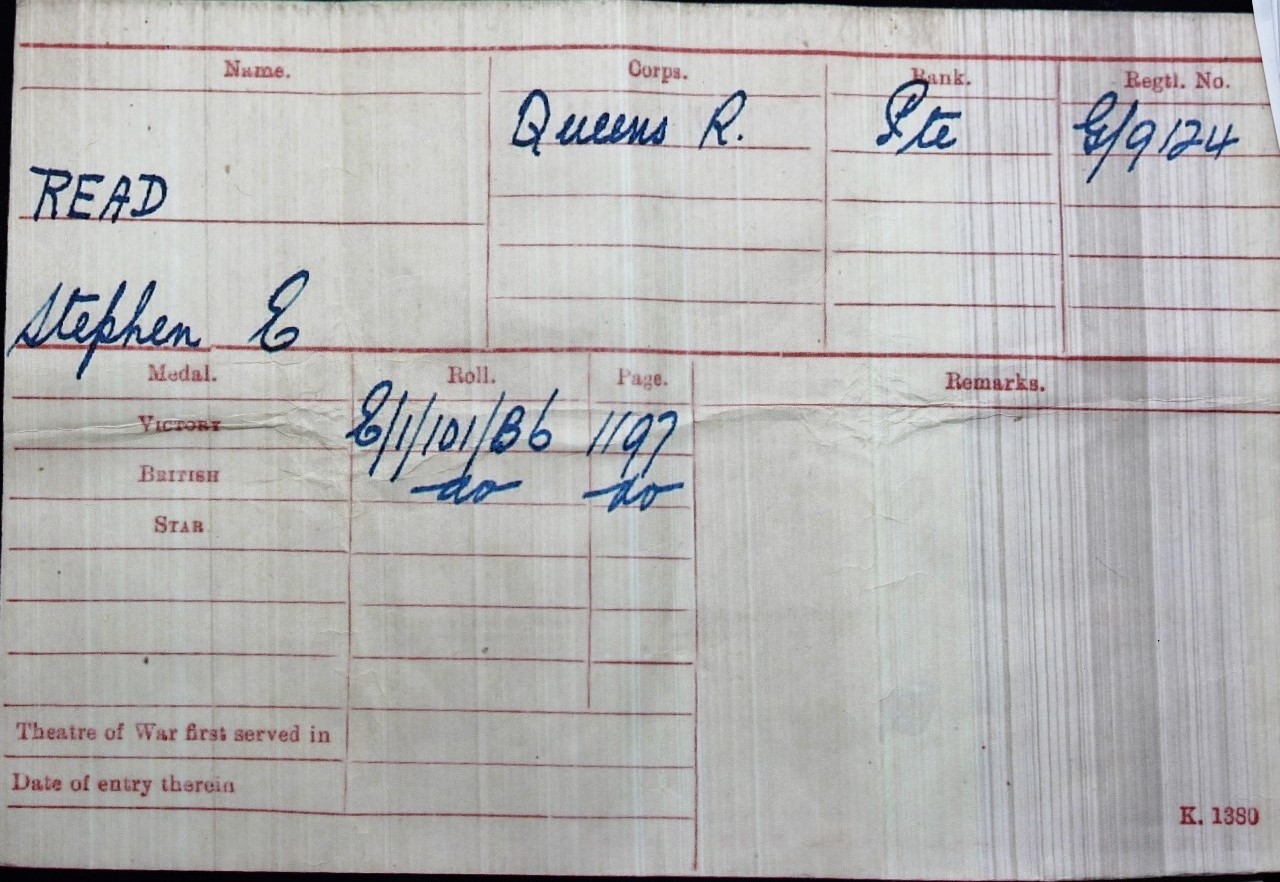 Name. Corps. Rank. Regtl. No.
Queens R. Pte G/9124
READ
Stephen E
Medal. Roll. Page. Remarks.
VICTORY E/1/101/B6 1197
BRITISH do do
STAR
Theatre of War first served in
Date of entry therein
K. 1380